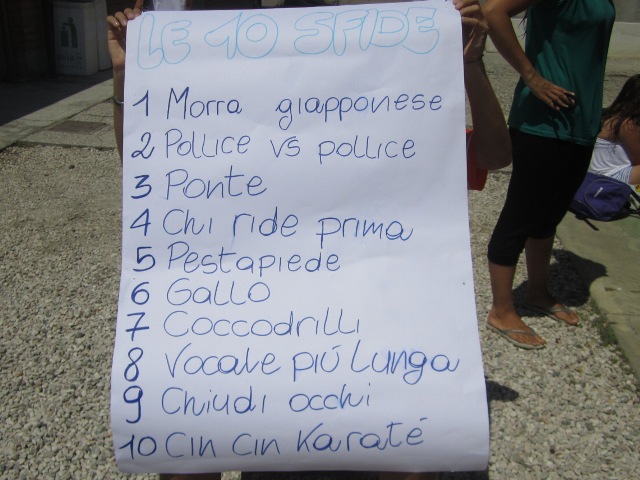 LE 10 SFIDE
1 Morra giapponese
2 Pollice vs pollice
3 Ponte
4 Chi ride prima
5 Pestapiede
6 Gallo
7 Coccodrilli
8 Vocale piú lunga
9 Chiudi occhi
10 Cin Cin Karaté